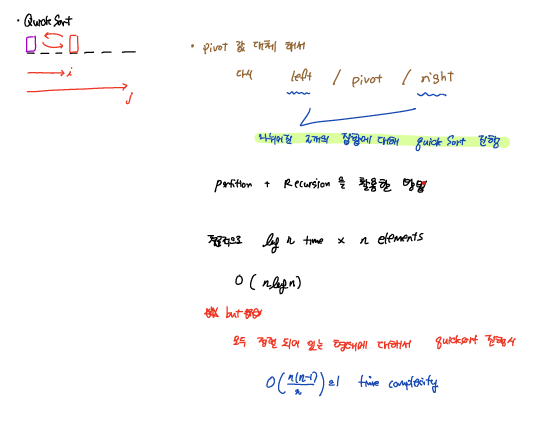 • Quick Sort
i
j
• pivot 값 대체 해서
다시 left / pivot / right
나뉘어진 2개의 집합에 대해 quick sort 진행
partition + Recursion 을 활용한 방법
log n time × n elements
O ( n log n )
but
모두 정렬 되어 있는 형태에 대해서 quicksort 진행시
O ( n(n-1) / 2 ) time complexity